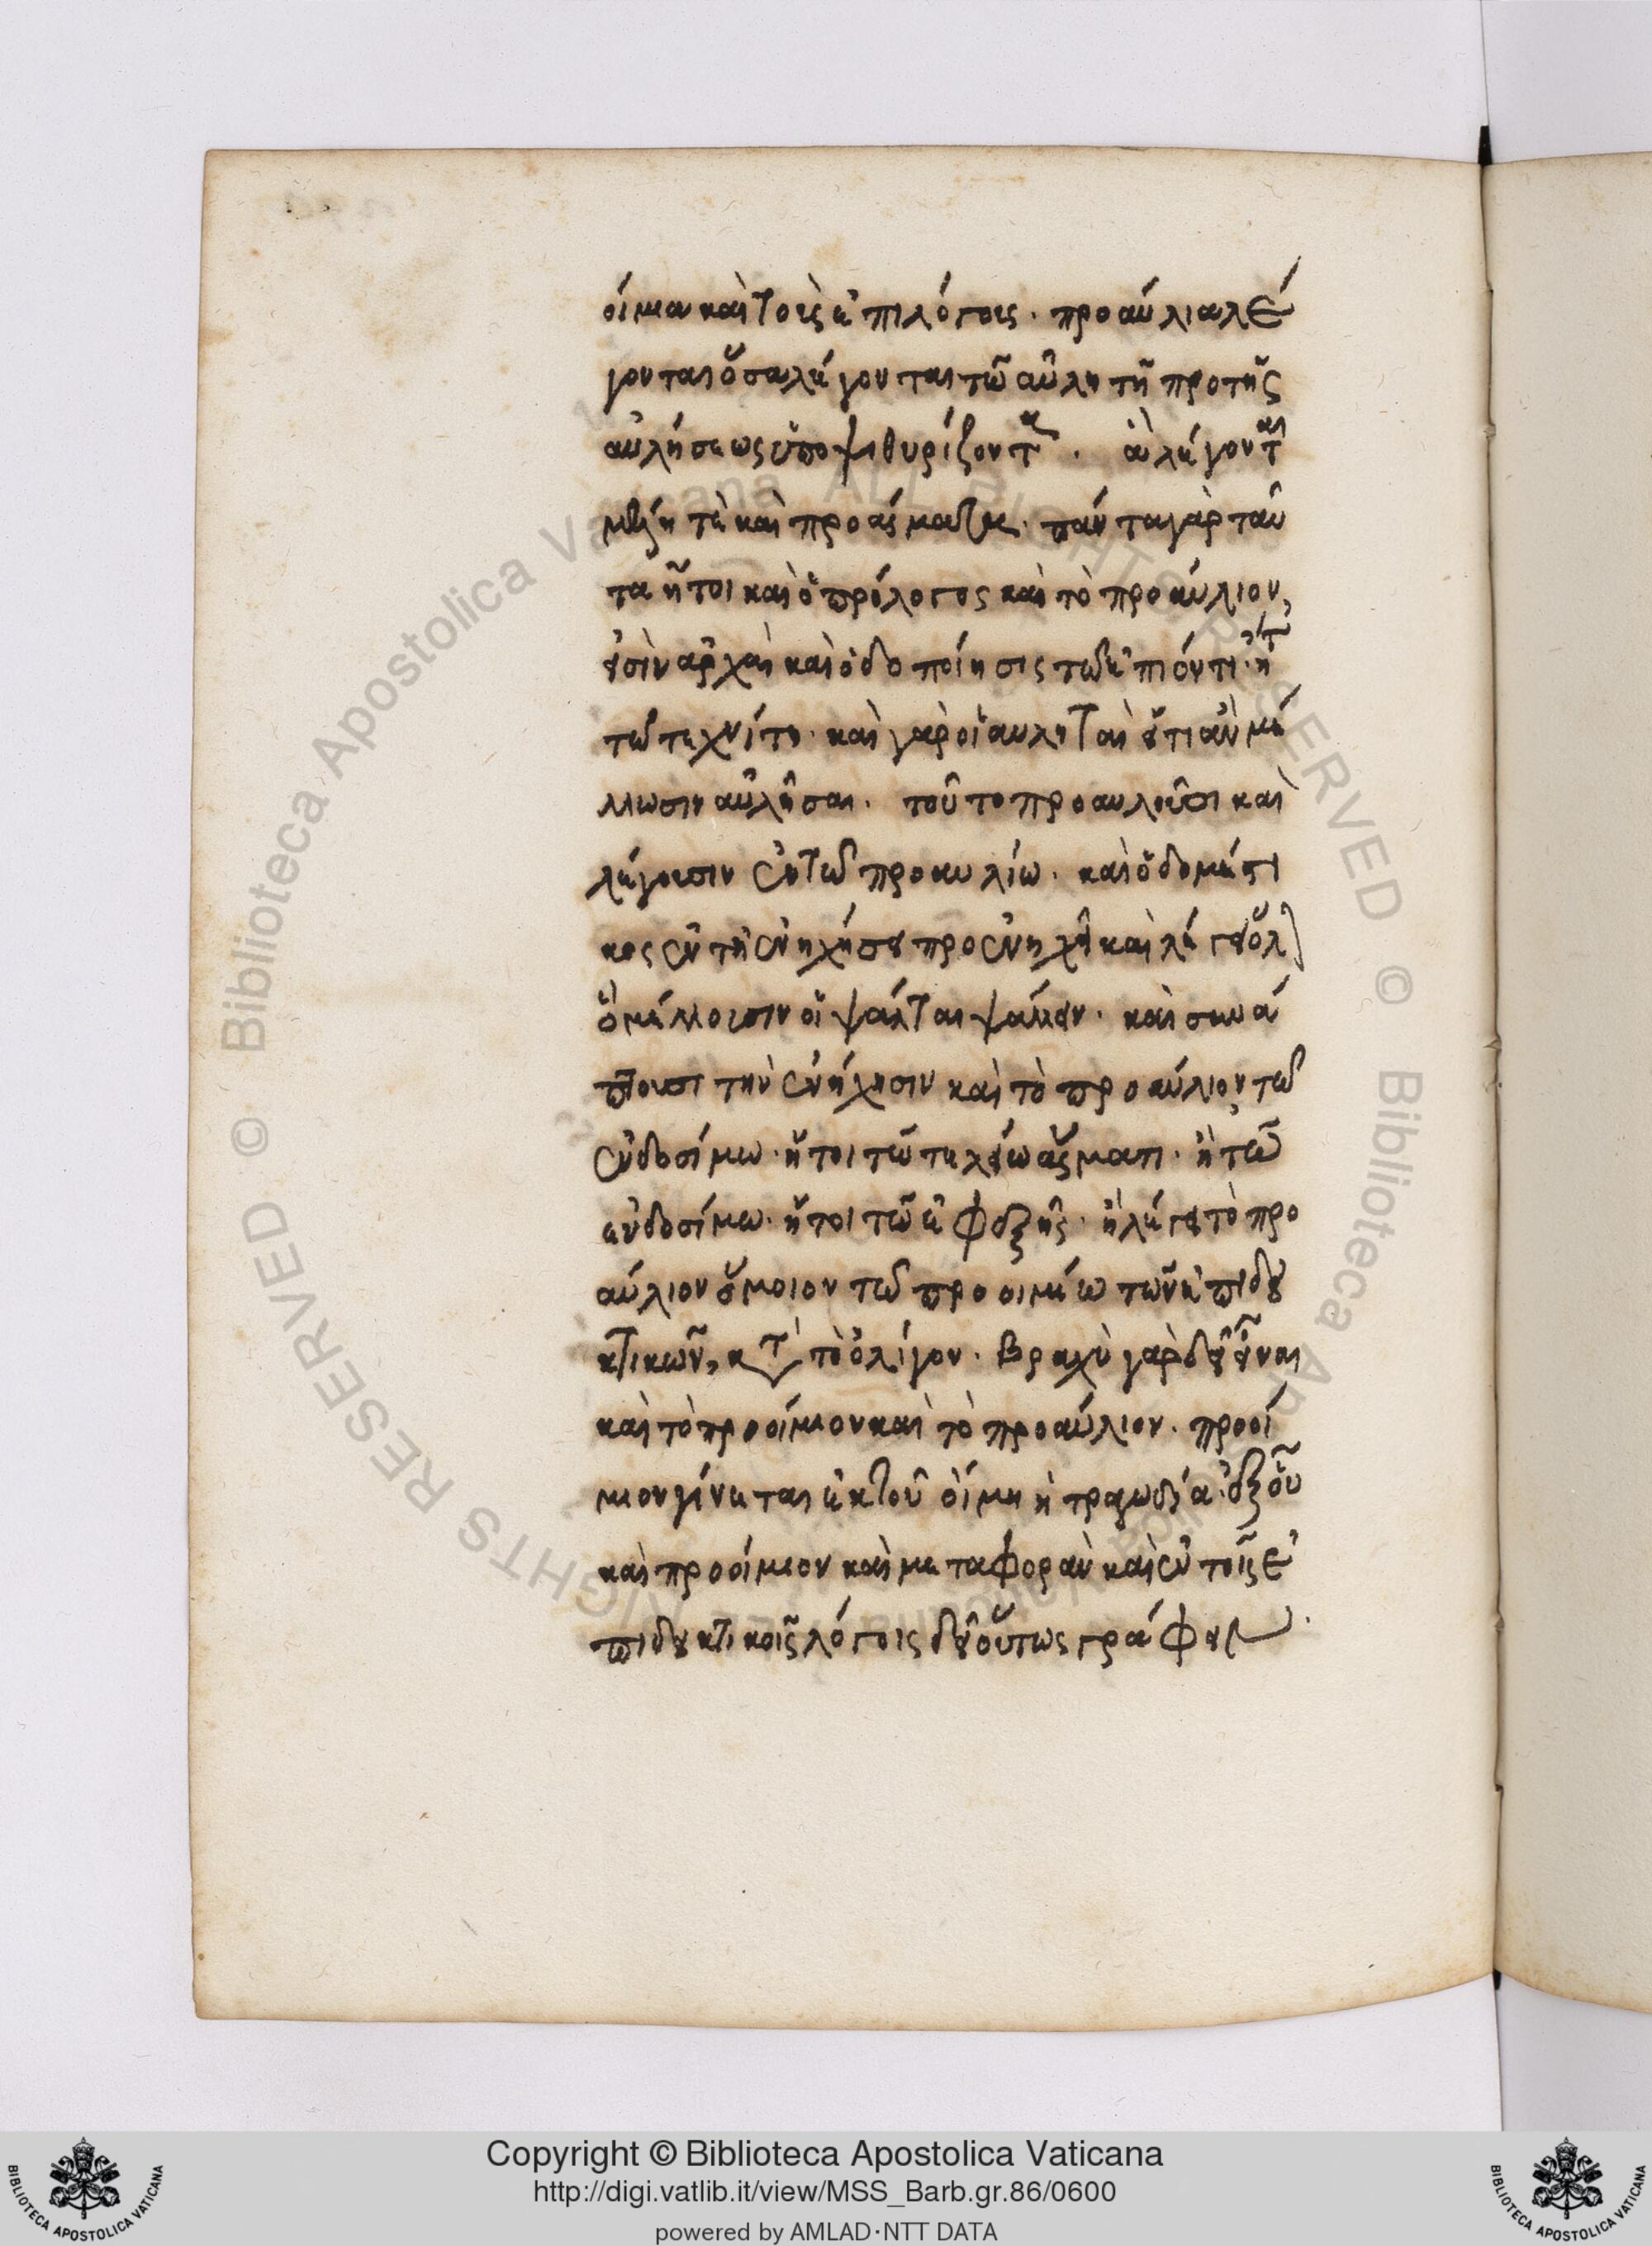 οίμια καὶ τοῖς ἐπιλόγοις. προαύλια λέ
γονται ὅσα λέγονται τῶ αὐλητῆ πρὸ τῆς
αὐλήσεως ὑποψιθυρίζοντα. ἃ λέγονται
καὶ προάσματα. πάντα γὰρ ταῦ
τα ἤτοι καὶ ὁ πρόλογος καὶ τὸ προαύλιον,
εἰσὶν ἀρχαὶ καὶ ὁδοποίησις τῶ ἐπιόντι.
τῶ τεχνίτη. καὶ γὰρ οἱ αὐληταὶ ὅτι ἂν μέ
λλωσιν αὐλῆσαι. τοῦτο προαυλοῦσι καὶ
λέγουσιν ἐν τῶ προαυλίω. καὶ ὁ δομέστι
κος ἐν τῆ ἐνηχήσει προενηχεῖ καὶ λέγει ὅλ
ὃ μέλλουσιν οἱ ψάλται ψάλλειν. καὶ συνά
πτουσι τὴν ἐνήχησιν καὶ τὸ προαύλιον τῶ
ἐνδοσίμω. ἤτοι τῶ τελείω ἄσματι. ἢ τῶ
ἐνδοσίμω. ἤτοι τῶ ἐφεξῆς. ἢ λέγει τὸ προ
αύλιον ὅμοιον τῶ προοιμίω τῶν ἐπιδει
κτικῶν, κατὰ τὸ ὀλίγον. βραχὺ γὰρ δεῖ εἶναι
καὶ τὸ προοίμιον καὶ τὸ προαύλιον. προοί
μιον γίνεται ἐκ τοῦ οἴμη ἡ τραγωδία. ἐξ οὗ
καὶ προοίμιον καὶ μεταφορὰν καὶ ἐν τοῖς ἐ
πιδεικτικοῖς λόγοις δεῖ οὕτως γράφειν.
Copyright © Biblioteca Apostolica Vaticana
http://digi.vatlib.it/view/MSS_Barb.gr.86/0600
powered by AMLAD·NTT DATA